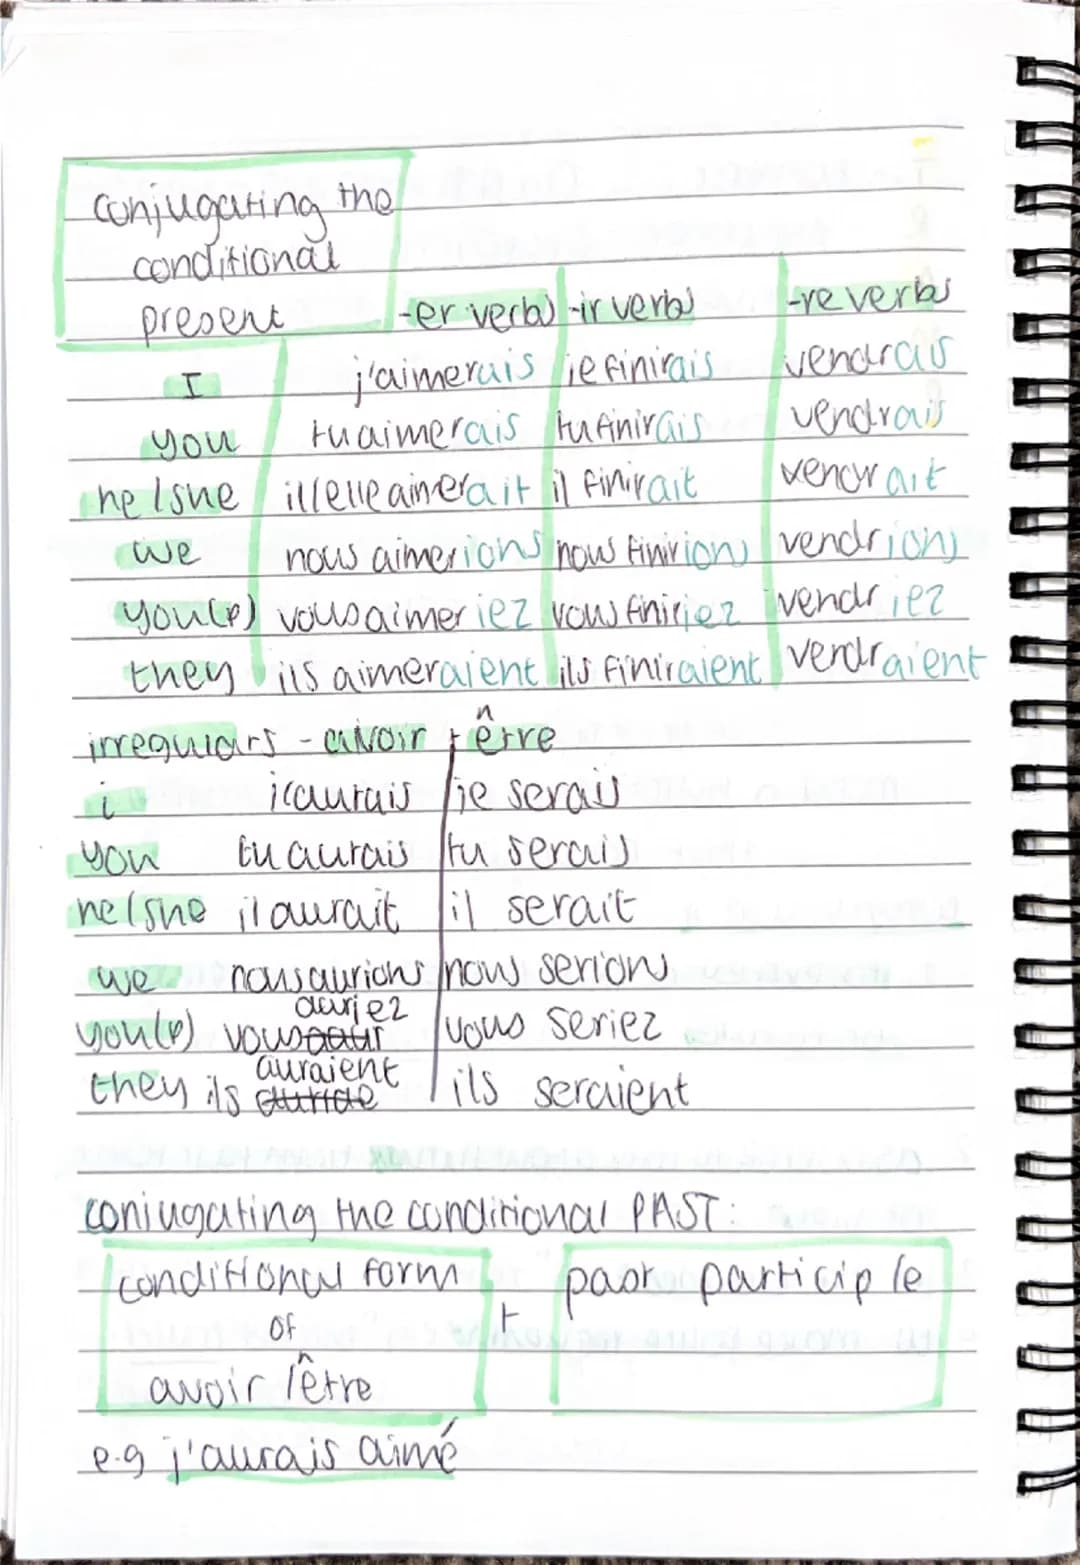 conjugating the
conditional
present -er verbs -ir verbs -re verbs
I j'aimerais je finirais vendrais
you tu aimerais tu finirais vendrais
he/she il/elle aimerait il finirait vendrait
we nous aimerions nous finirions vendrions
you(p) vous aimeriez vous finiriez vendriez
they ils aimeraient ils finiraient vendraient
irregulars - avoir + être
i j'aurais je serais
you tu aurais tu serais
he/she il aurait il serait
we nous aurions nous serions
you(p) vous auriez vous seriez
they ils auraient ils seraient
conjugating the conditional PAST:
conditional form past participle
of +
avoir/être
e.g j'aurais aimé